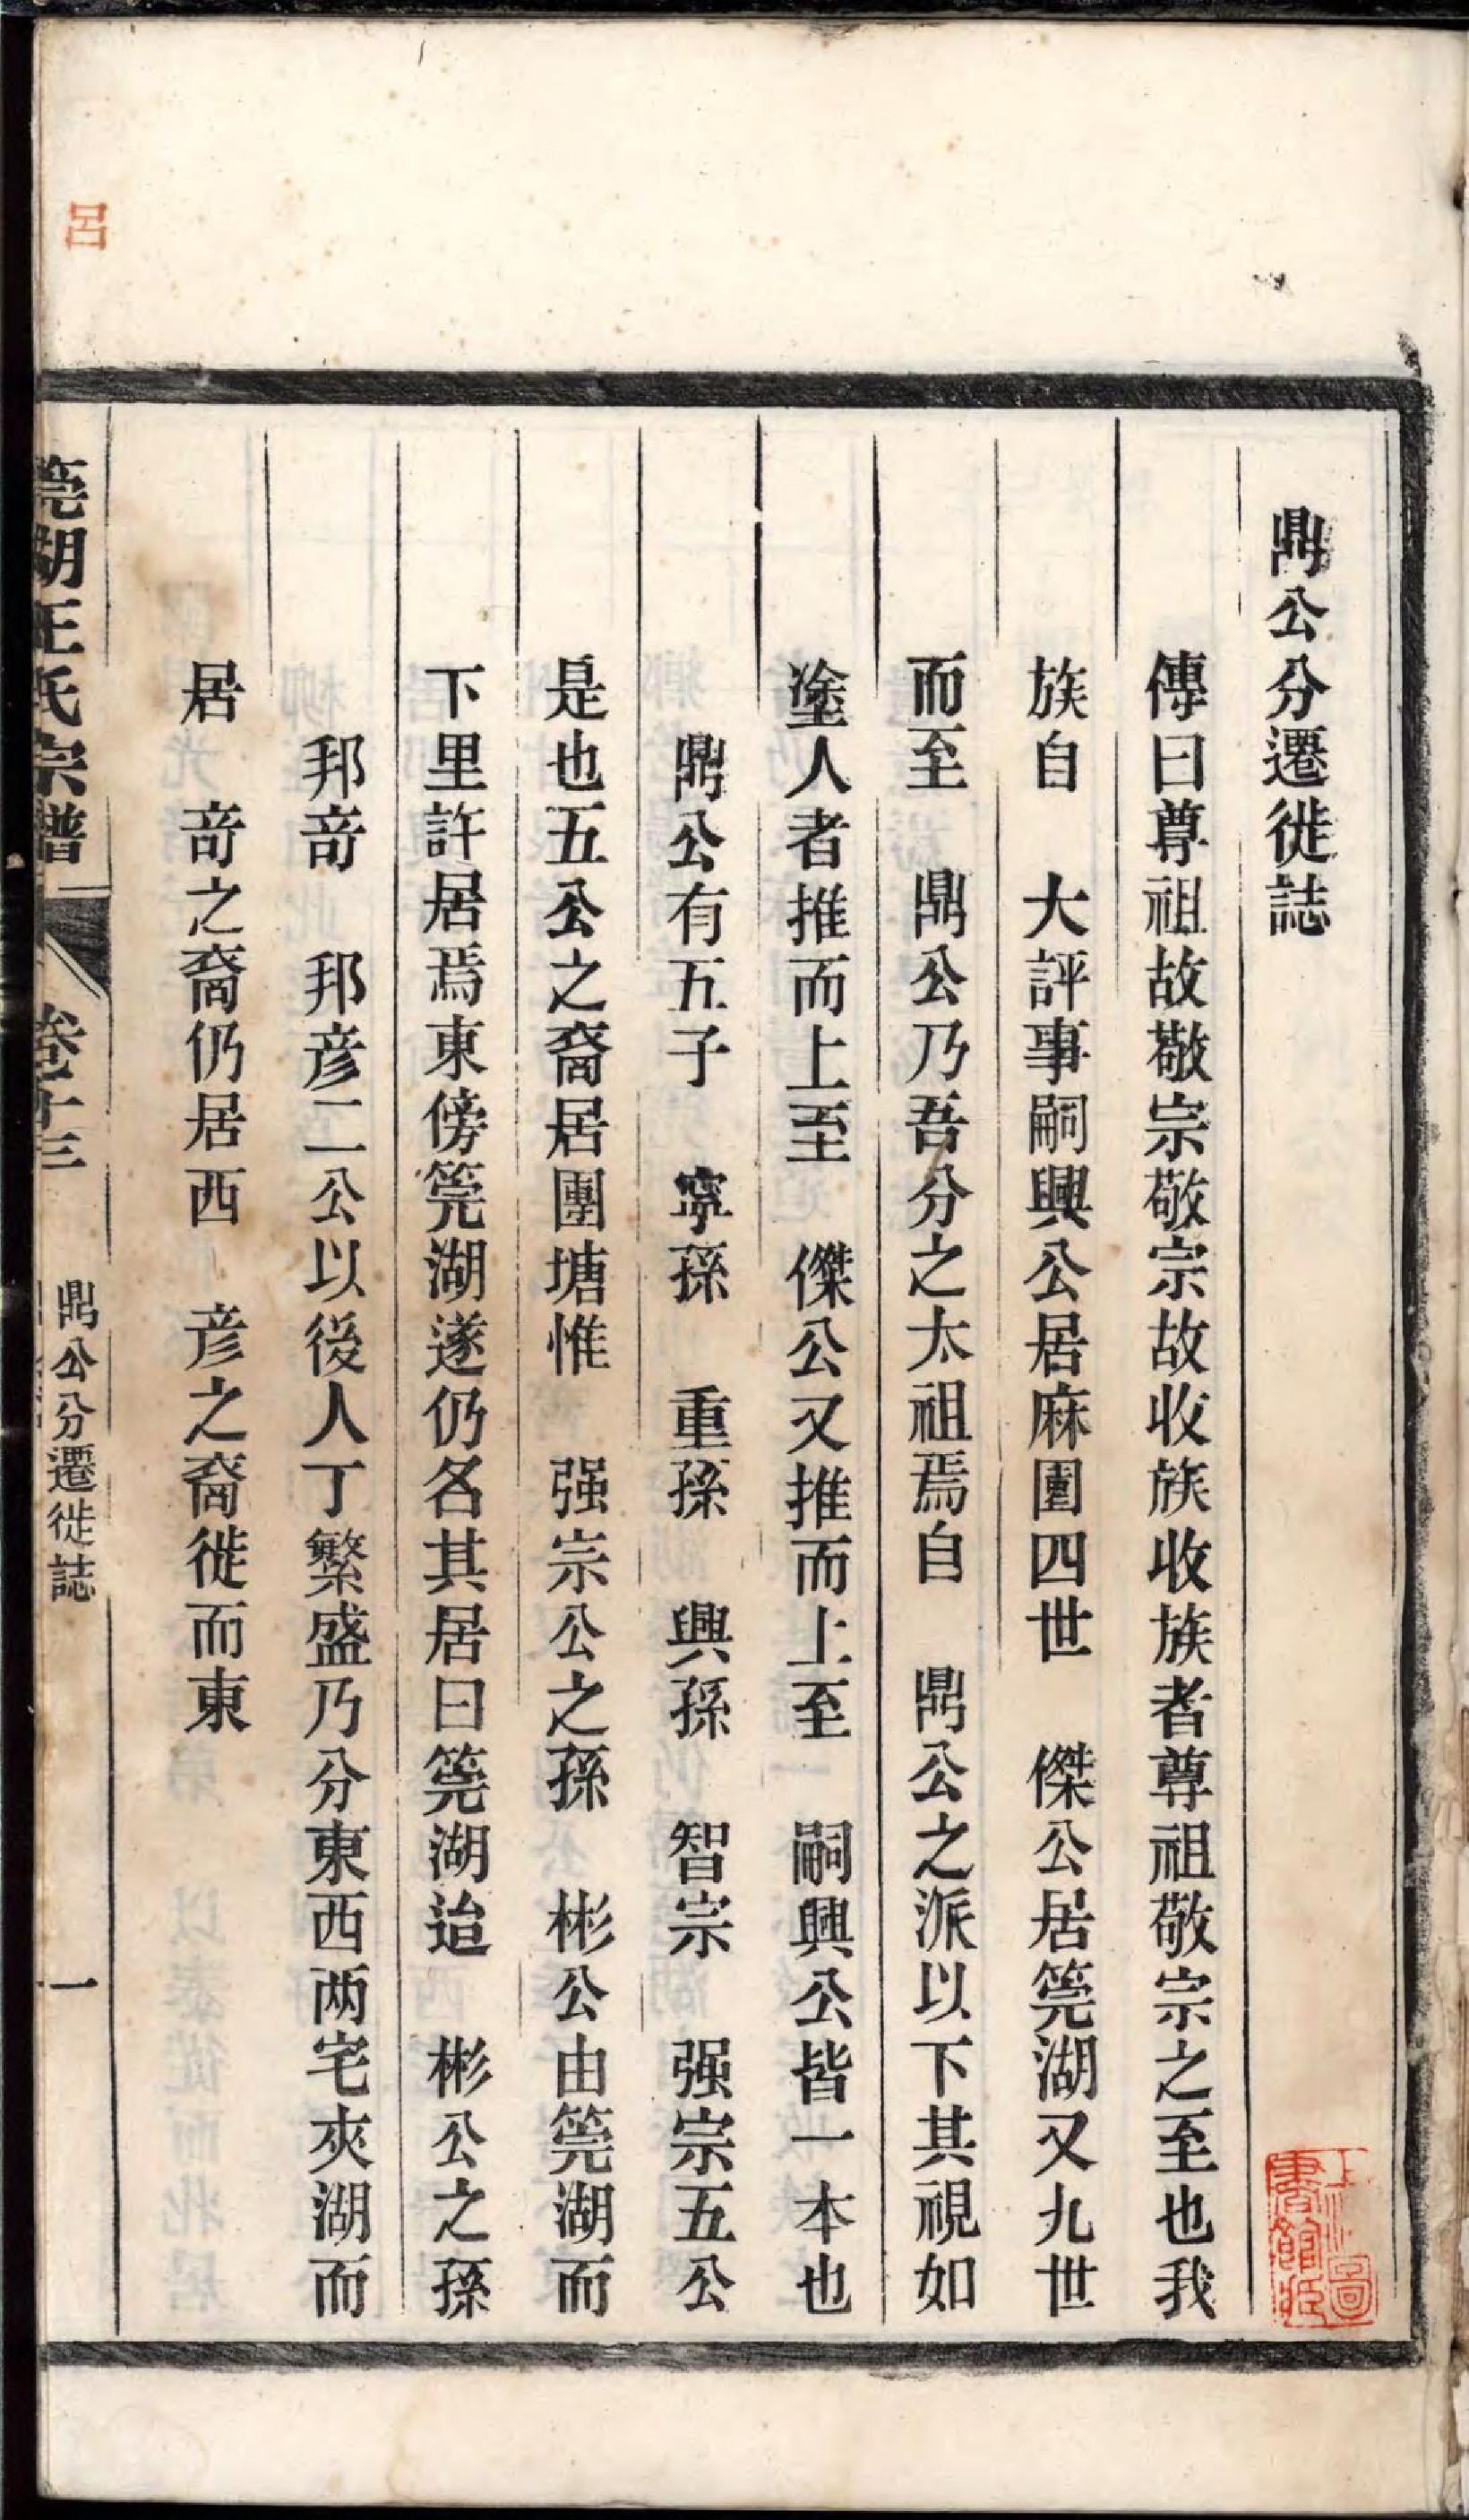 鼎公分遷徙誌
傳曰尊祖故敬宗敬宗故收族收族者尊祖敬宗之至也我
族自　大評事嗣興公居麻園四世　傑公居箢湖又九世
而至　鼎公乃吾分之太祖焉自　鼎公之派以下其視如
塗人者推而上至　傑公又推而上至　嗣興公皆一本也
鼎公有五子　寧孫　重孫　興孫　智宗　强宗五公
是也五公之裔居團塘惟　强宗公之孫　彬公由箢湖而
下里許居焉東傍箢湖遂仍名其居曰箢湖迨　彬公之孫
邦竒　邦彦二公以後人丁繁盛乃分東西两宅夾湖而
居　竒之裔仍居西　彦之裔徙而東
箢湖王氏宗譜　卷十三　鼎公分遷徙誌　一
呂
上海圖書館藏